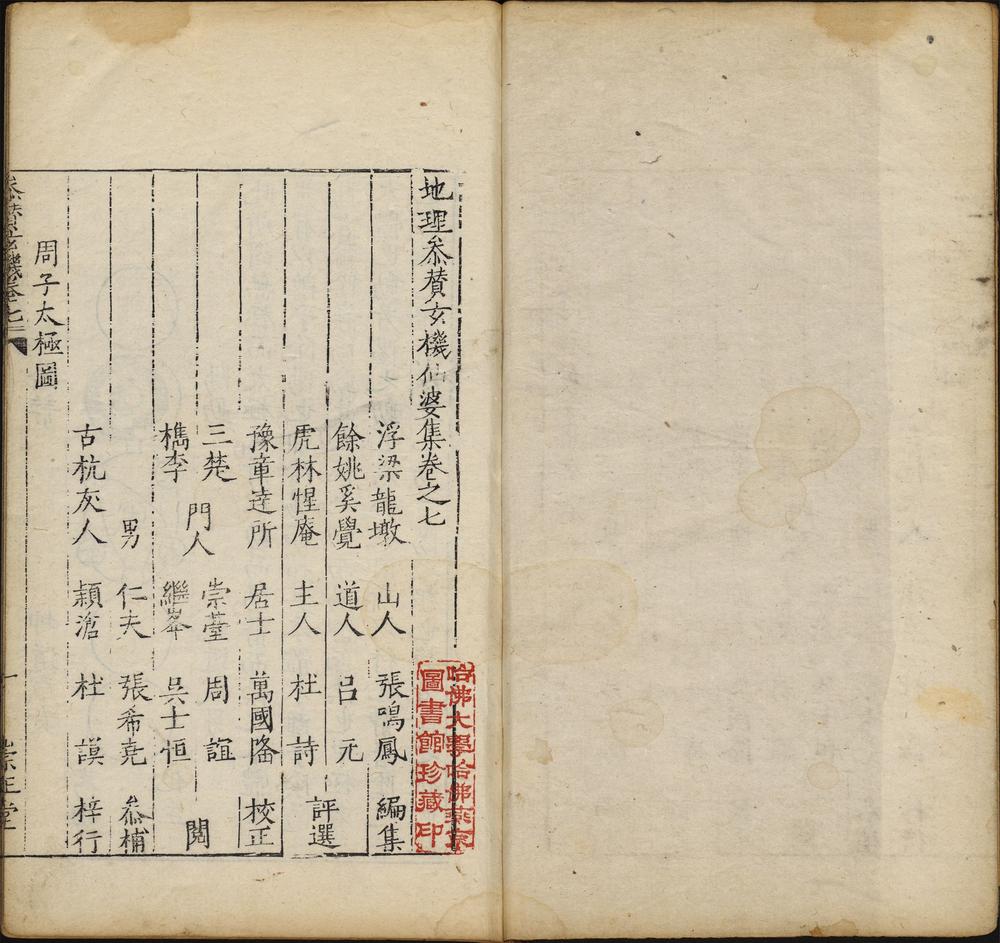 地理叅賛玄機仙婆集卷之七
浮梁龍墩 山人 張鳴鳳 編集
餘姚奚覺 道人 吕元
虎林惺庵 主人 杜詩 評選
豫章達所 居士 萬國隆 校正
三楚 崇臺 周誼
檇李 門人 繼峯 吳士恒 閲
男 仁夫 張希堯 叅補
古杭灰人 頴滄 杜謨 梓行
周子太極圖
叅賛玄機卷七
一
崇正堂
哈佛大學哈佛燕京
圖書館珍藏印